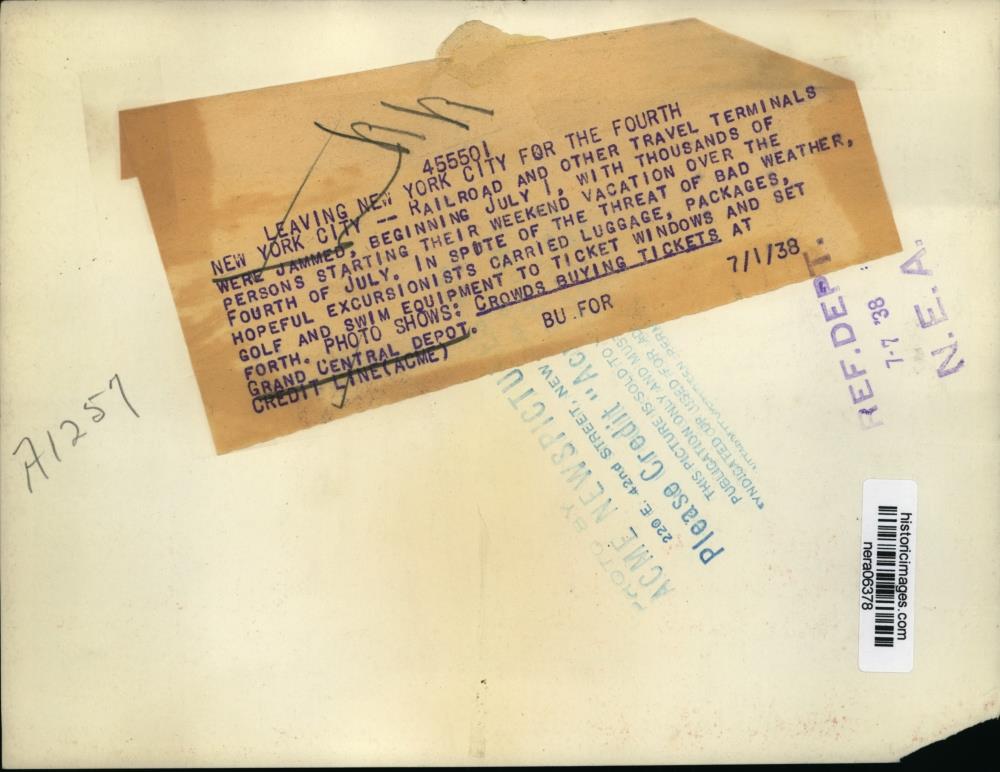 455501
LEAVING NEW YORK CITY FOR THE FOURTH
NEW YORK CITY -- RAILROAD AND OTHER TRAVEL TERMINALS
WERE JAMMED, BEGINNING JULY 1, WITH THOUSANDS OF
PERSONS STARTING THEIR WEEKEND VACATION OVER THE
FOURTH OF JULY. IN SPUTE OF THE THREAT OF BAD WEATHER,
HOPEFUL EXCURSIONISTS CARRIED LUGGAGE, PACKAGES,
GOLF AND SWIM EQUIPMENT TO TICKET WINDOWS AND SET
FORTH. PHOTO SHOWS: CROWDS BUYING TICKETS AT
GRAND CENTRAL DEPOT.
CREDIT LINE(ACME)
BU.FOR
7/1/38
A1257
PHOTO BY
ACME NEWSPICTU
220 E. 42nd STREET, NEW
Please Credit "AC
THIS PICTURE IS SOLD TO
PUBLICATION ONLY AND MUS
SYNDICATED OR USED FOR AD
REF. DEPT.
7-7 '38
N.E.A.
historicimages.com
nera06378